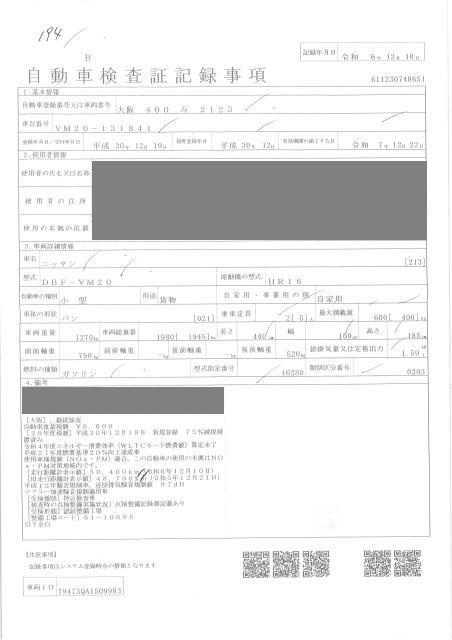 194
B
記録年月日 令和 6年 12月 10日
自動車検査証記録事項
611230748651
1.基本情報
自動車登録番号又は車両番号 大阪 400 み 2123
車台番号 VM20-131841
登録年月日/交付年月日 平成 30年 12月 19日 初度登録年月 平成 30年 12月 有効期間の満了する日 令和 7年 12月 22日
2.使用者情報
使用者の氏名又は名称
使用者の住所
使用の本拠の位置
3.車両詳細情報
車名 ニッサン [213]
型式 DBF-VM20 原動機の型式 HR16
自動車の種別 小型 用途 貨物 自家用・事業用の別 自家用
車体の形状 バン [021] 乗車定員 2[5]人 最大積載量 600[400]kg
車両重量 1270kg 車両総重量 1980[1945]kg 長さ 440cm 幅 169cm 高さ 185cm
前前軸重 750kg 前後軸重 -kg 後前軸重 -kg 後後軸重 520kg 総排気量又は定格出力 1.59L
燃料の種類 ガソリン 型式指定番号 16280 類別区分番号 0203
4.備考
[大阪],継続検査
自動車重量税額 ¥6,600
[29年度税制]平成30年12月19日 新規登録 75%減税措
置済み
令和4年度エネルギー消費効率(WLTCモード燃費値)算定未了
平成27年度燃費基準20%向上達成車
使用車種規制(NOx・PM)適合,この自動車の使用の本拠はNO
x・PM対策地域内です。
[走行距離計表示値]50,400km(令和6年12月10日)
[旧走行距離計表示値]48,700km(令和5年12月21日)
平成12年騒音規制車,近接排気騒音規制値 97dB
マフラー加速騒音規制適用車
[受検種別]持込検査車
[検査時の点検整備実施状況]点検整備記録簿記載あり
[受検形態]認証整備工場
[整備工場コード]61-10698
以下余白
[注意事項]
記録事項はシステム登録時点の情報となります
車両ID T9473QA1509983